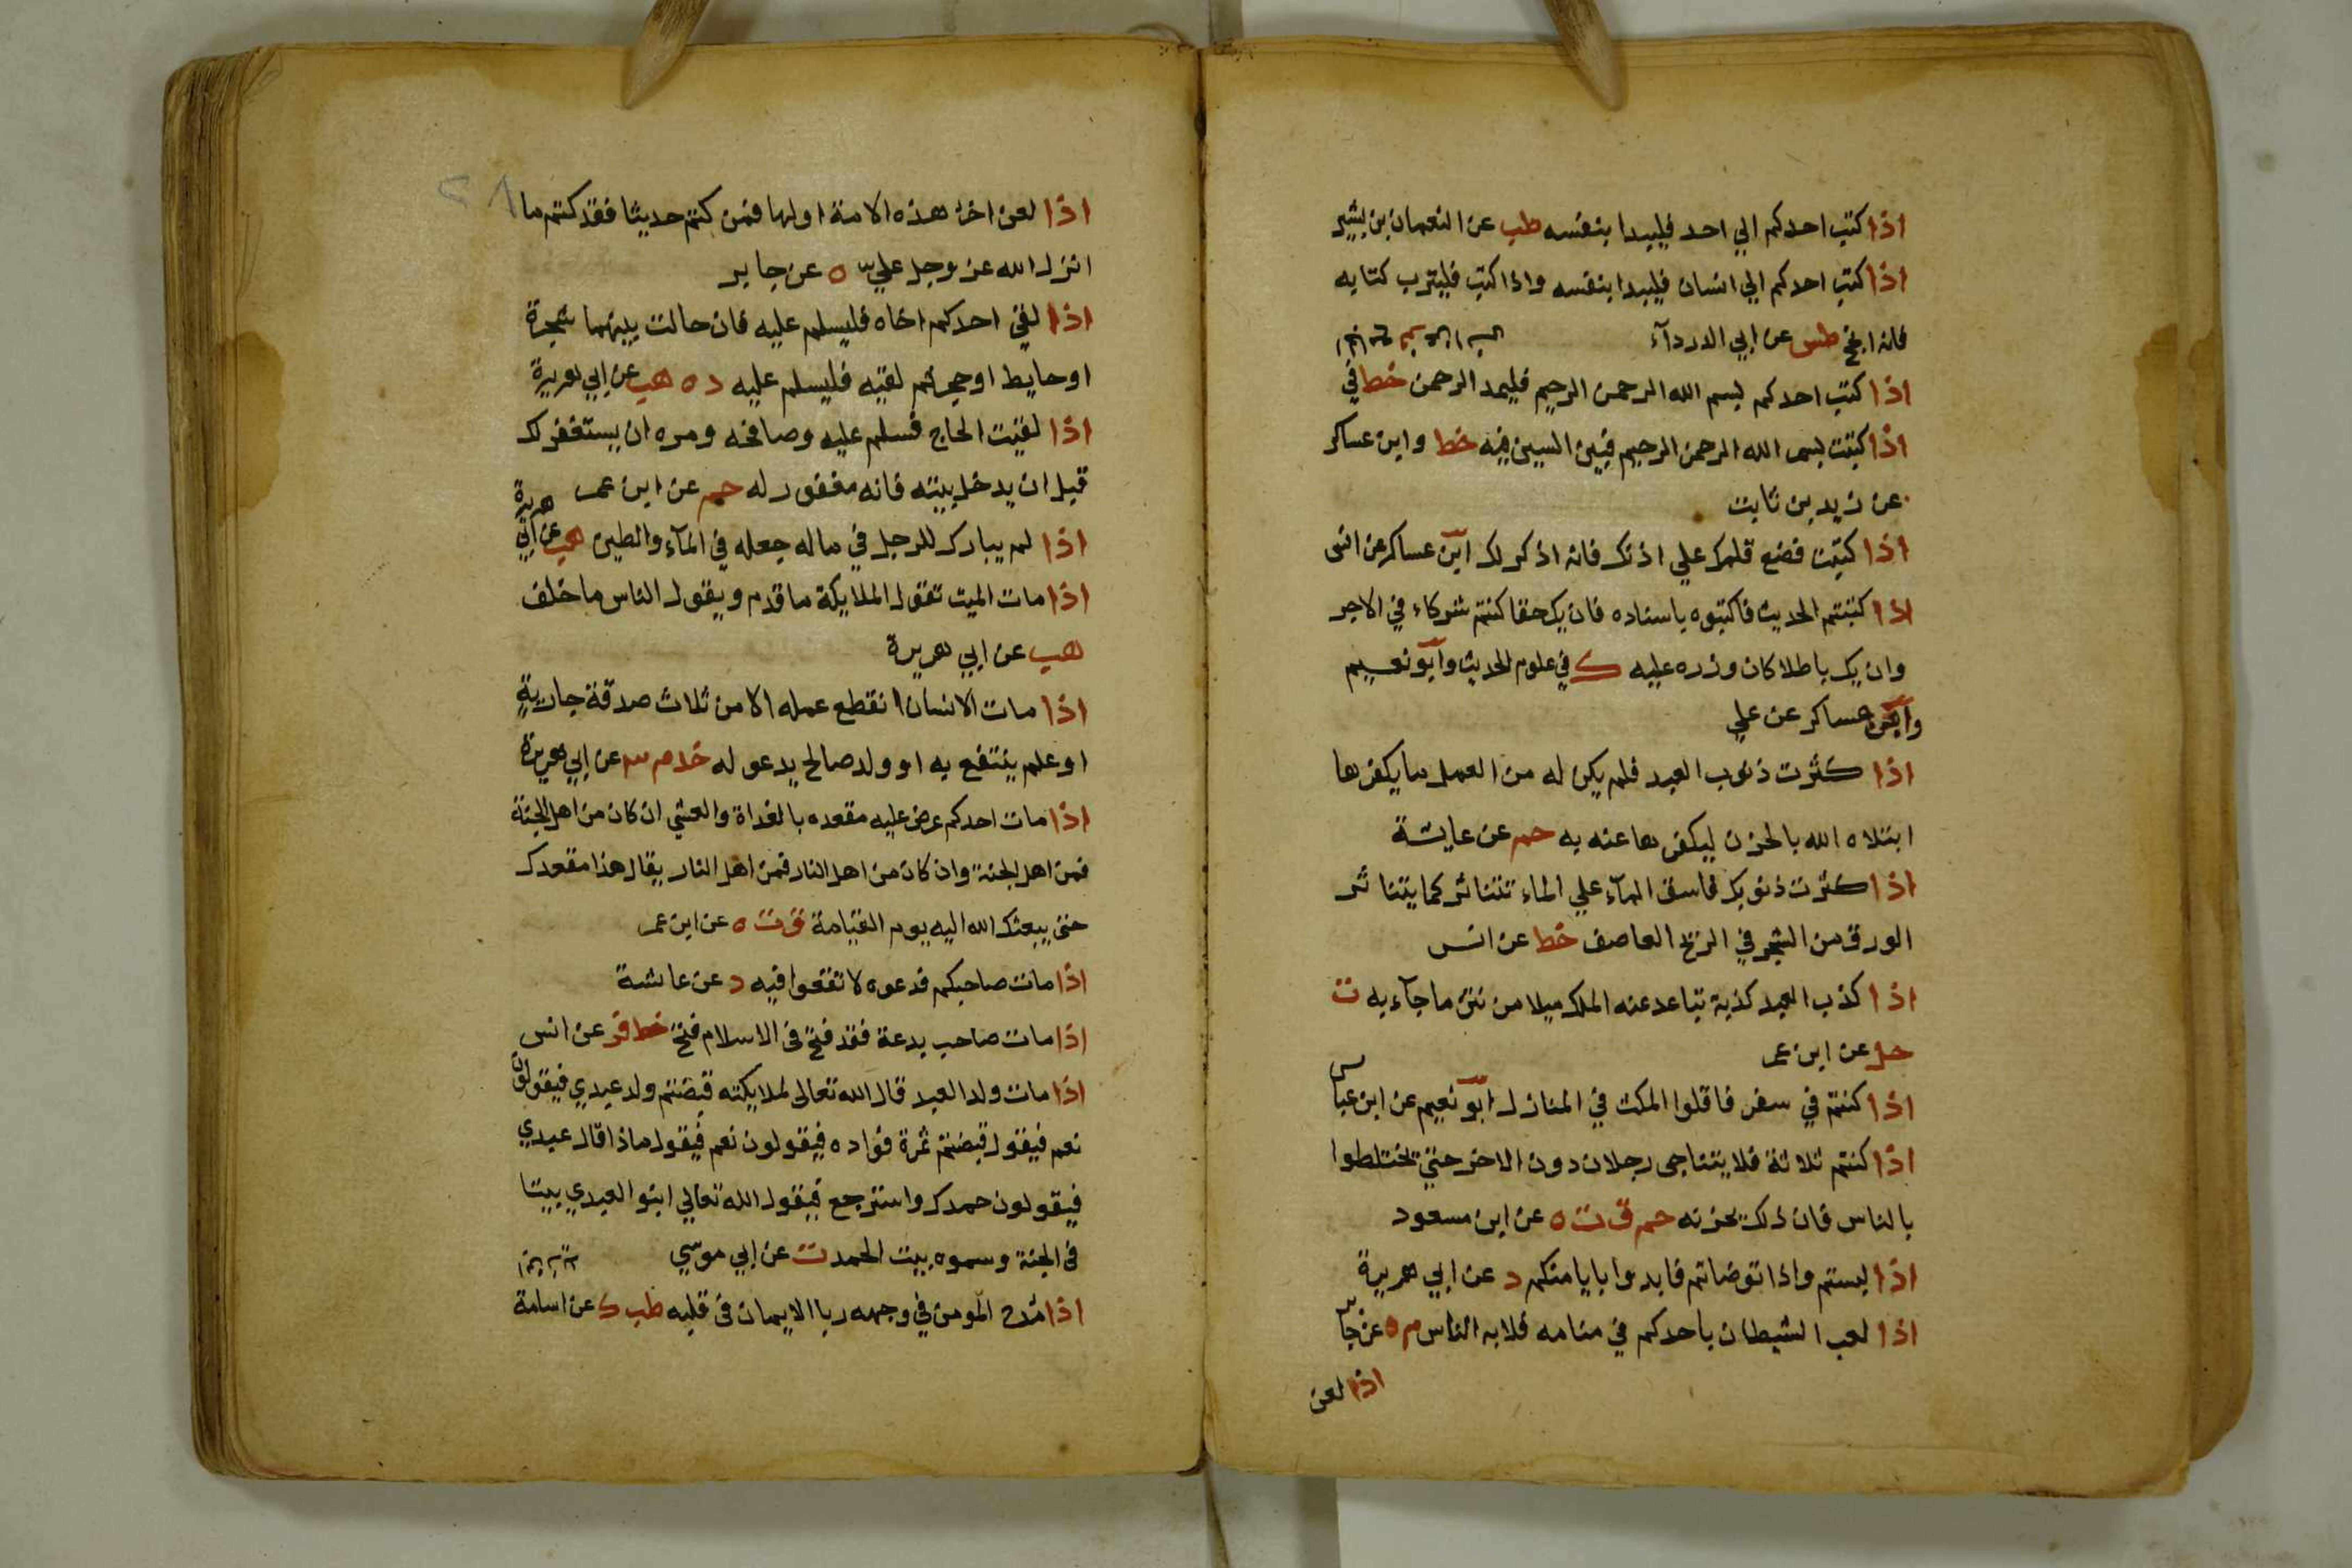 اذا كتب احدكم الي احد فليبدا بنفسه طب عن النعمان بن بشير
اذا كتب احدكم الي انسان فليبدا بنفسه واذا كتب فليترب كتابه
فانه انجح طس عن ابي الدرداء
اذا كتب احدكم بسم الله الرحمن الرحيم فليمد الرحمن خط في
اذا كتبت بسم الله الرحمن الرحيم فبين السين فيه خط وابن عساكر
عن زيد بن ثابت
اذا كتبت فضع قلمك علي اذنك فانه اذكر لك ابن عساكر عن انس
اذا كتبتم الحديث فاكتبوه باسناده فان يك حقا كنتم شركاء في الاجر
وان يك باطلا كان وزره عليه ك في علوم الحديث وابو نعيم
وابن عساكر عن علي
اذا كثرت ذنوب العبد فلم يكن له من العمل ما يكفرها
ابتلاه الله بالحزن ليكفرها عنه به حم عن عايشة
اذا كثرت ذنوبك فاسق الماء علي الماء تتناثر كما يتناثر
الورق من الشجر في الريح العاصف خط عن انس
اذا كذب العبد كذبة تباعد عنه الملك ميلا من نتن ما جاء به ت
حل عن ابن عمر
اذا كنتم في سفر فاقلوا المكث في المنازل ابو نعيم عن ابن عباس
اذا كنتم ثلاثة فلا يتناجى رجلان دون الاخر حتي تختلطوا
بالناس فان ذلك يحزنه حم ق ت ه عن ابن مسعود
اذا لبستم واذا توضاتم فابدوا بايامنكم د عن ابي هريرة
اذا لعب الشيطان باحدكم في منامه فلا به الناس م ه عن جابر
اذا لعن
اذا لعن اخر هذه الامة اولها فمن كتم حديثا فقد كتم ما
انزل الله عز وجل علي ه عن جابر
اذا لقي احدكم اخاه فليسلم عليه فان حالت بينهما شجرة
او حايط او حجر ثم لقيه فليسلم عليه د ه هب عن ابي هريرة
اذا لقيت الحاج فسلم عليه وصافحه ومره ان يستغفر لك
قبل ان يدخل بيته فانه مغفور له حم عن ابن عمر
اذا لم يبارك للرجل في ماله جعله في الماء والطين هب عن ابي هريرة
اذا مات الميت تقول الملايكة ما قدم ويقول الناس ما خلف
هب عن ابي هريرة
اذا مات الانسان انقطع عمله الا من ثلاث صدقة جارية
او علم ينتفع به او ولد صالح يدعو له خد م عن ابي هريرة
اذا مات احدكم عرض عليه مقعده بالغداة والعشي ان كان من اهل الجنة
فمن اهل الجنة وان كان من اهل النار فمن اهل النار يقال هذا مقعدك
حتى يبعثك الله اليه يوم القيامة ق ت ه عن ابن عمر
اذا مات صاحبكم فدعوه لا تقعوا فيه د عن عائشة
اذا مات صاحب بدعة فقد فتح في الاسلام فتح خط فر عن انس
اذا مات ولد العبد قال الله تعالى لملايكته قبضتم ولد عبدي فيقولون
نعم فيقول قبضتم ثمرة فؤاده فيقولون نعم فيقول ماذا قال عبدي
فيقولون حمدك واسترجع فيقول الله تعالي ابنوا لعبدي بيتا
في الجنة وسموه بيت الحمد ت عن ابي موسي
اذا مدح المومن في وجهه ربا الايمان في قلبه طب ك عن اسامة